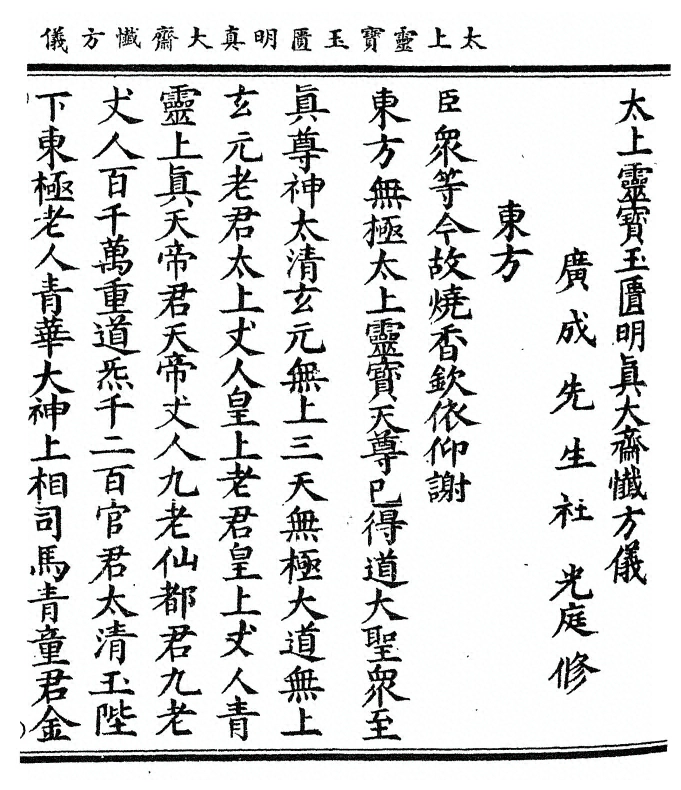 太上靈寶玉匱明真大齋懺方儀
太上靈寶玉匱明眞大齋懺方儀
廣成先生社光庭修
東方
臣衆等今故燒香欽依仰謝
東方無極太上靈寶天尊已得道大聖衆至
眞尊神太清玄元無上三天無極大道無上
玄元老君太上丈人皇上老君皇上丈人青
靈上眞天帝君天帝丈人九老仙都君九老
丈人百千萬重道炁千二百官君太清玉陛
下東極老人青華大神上相司馬青童君金